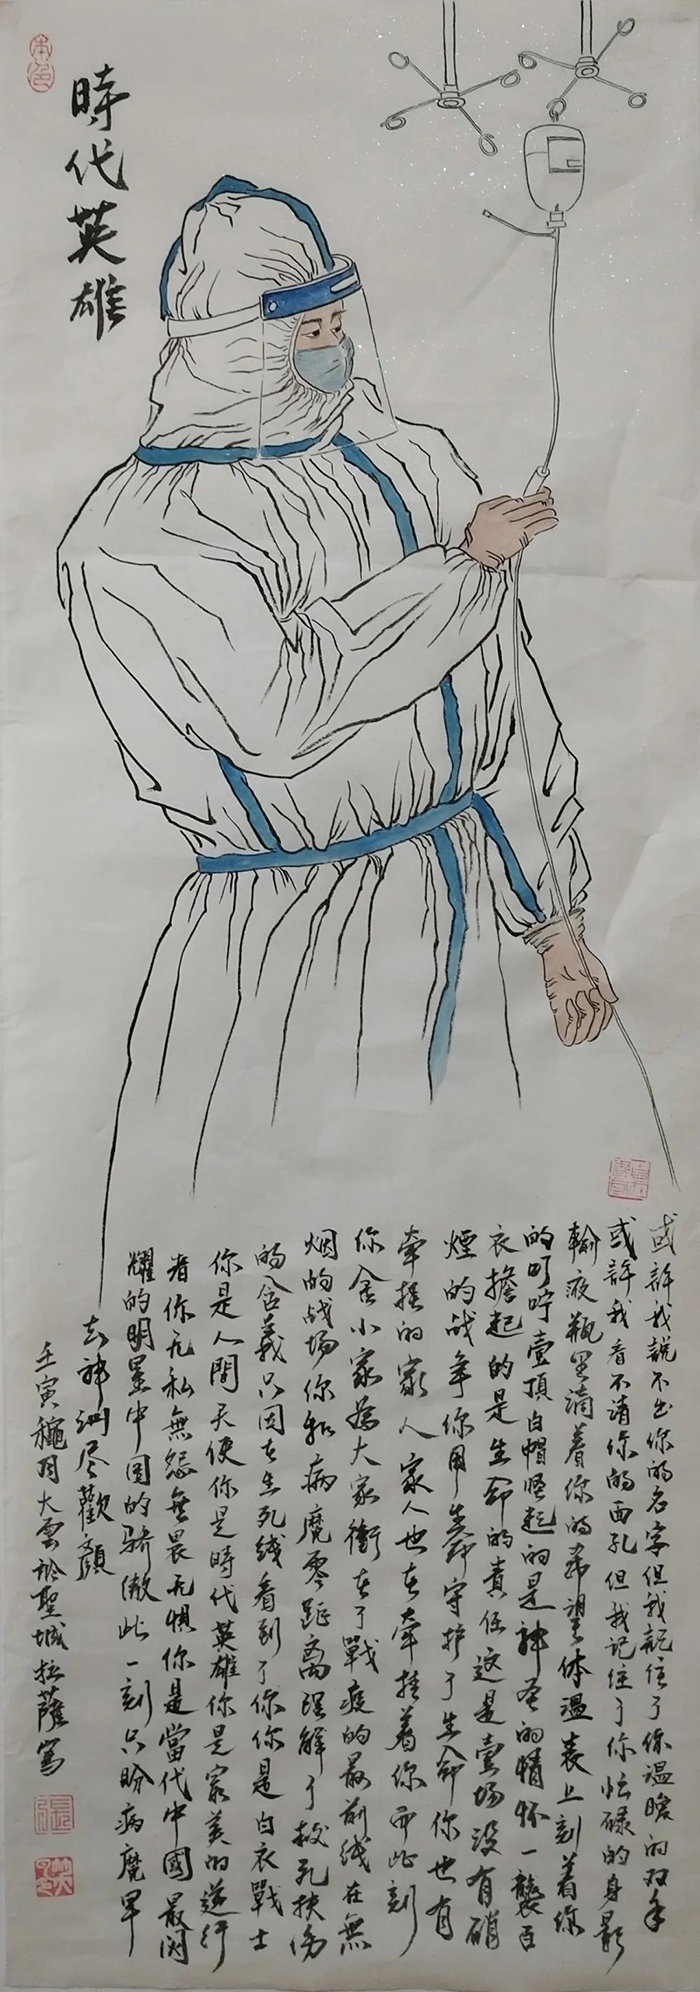 時代英雄
或許我說不出你的名字但我記住了你温暖的双手
或許我看不清你的面孔但我记住了你忙碌的身影
輸液瓶里滴着你的希望体温表上刻着你
的叮咛壹頂白帽隆起的是神圣的情怀一襲白
衣擔起的是生命的責任这是壹场没有硝
煙的战争你用生命守护了生命你也有
牵挂的家人家人也在牵挂着你而此刻
你舍小家為大家衝在了戰疫的最前线在無
烟的战场你和病魔零距离理解了救死扶伤
的含義只因在生死线看到了你你是白衣戰士
你是人間天使你是時代英雄你是最美的逆行
者你无私無怨無畏无惧你是當代中國最闪
耀的明星中国的骄傲此一刻只盼病魔早
去神洲尽歡顔
壬寅穐月大雲於聖城拉薩寫